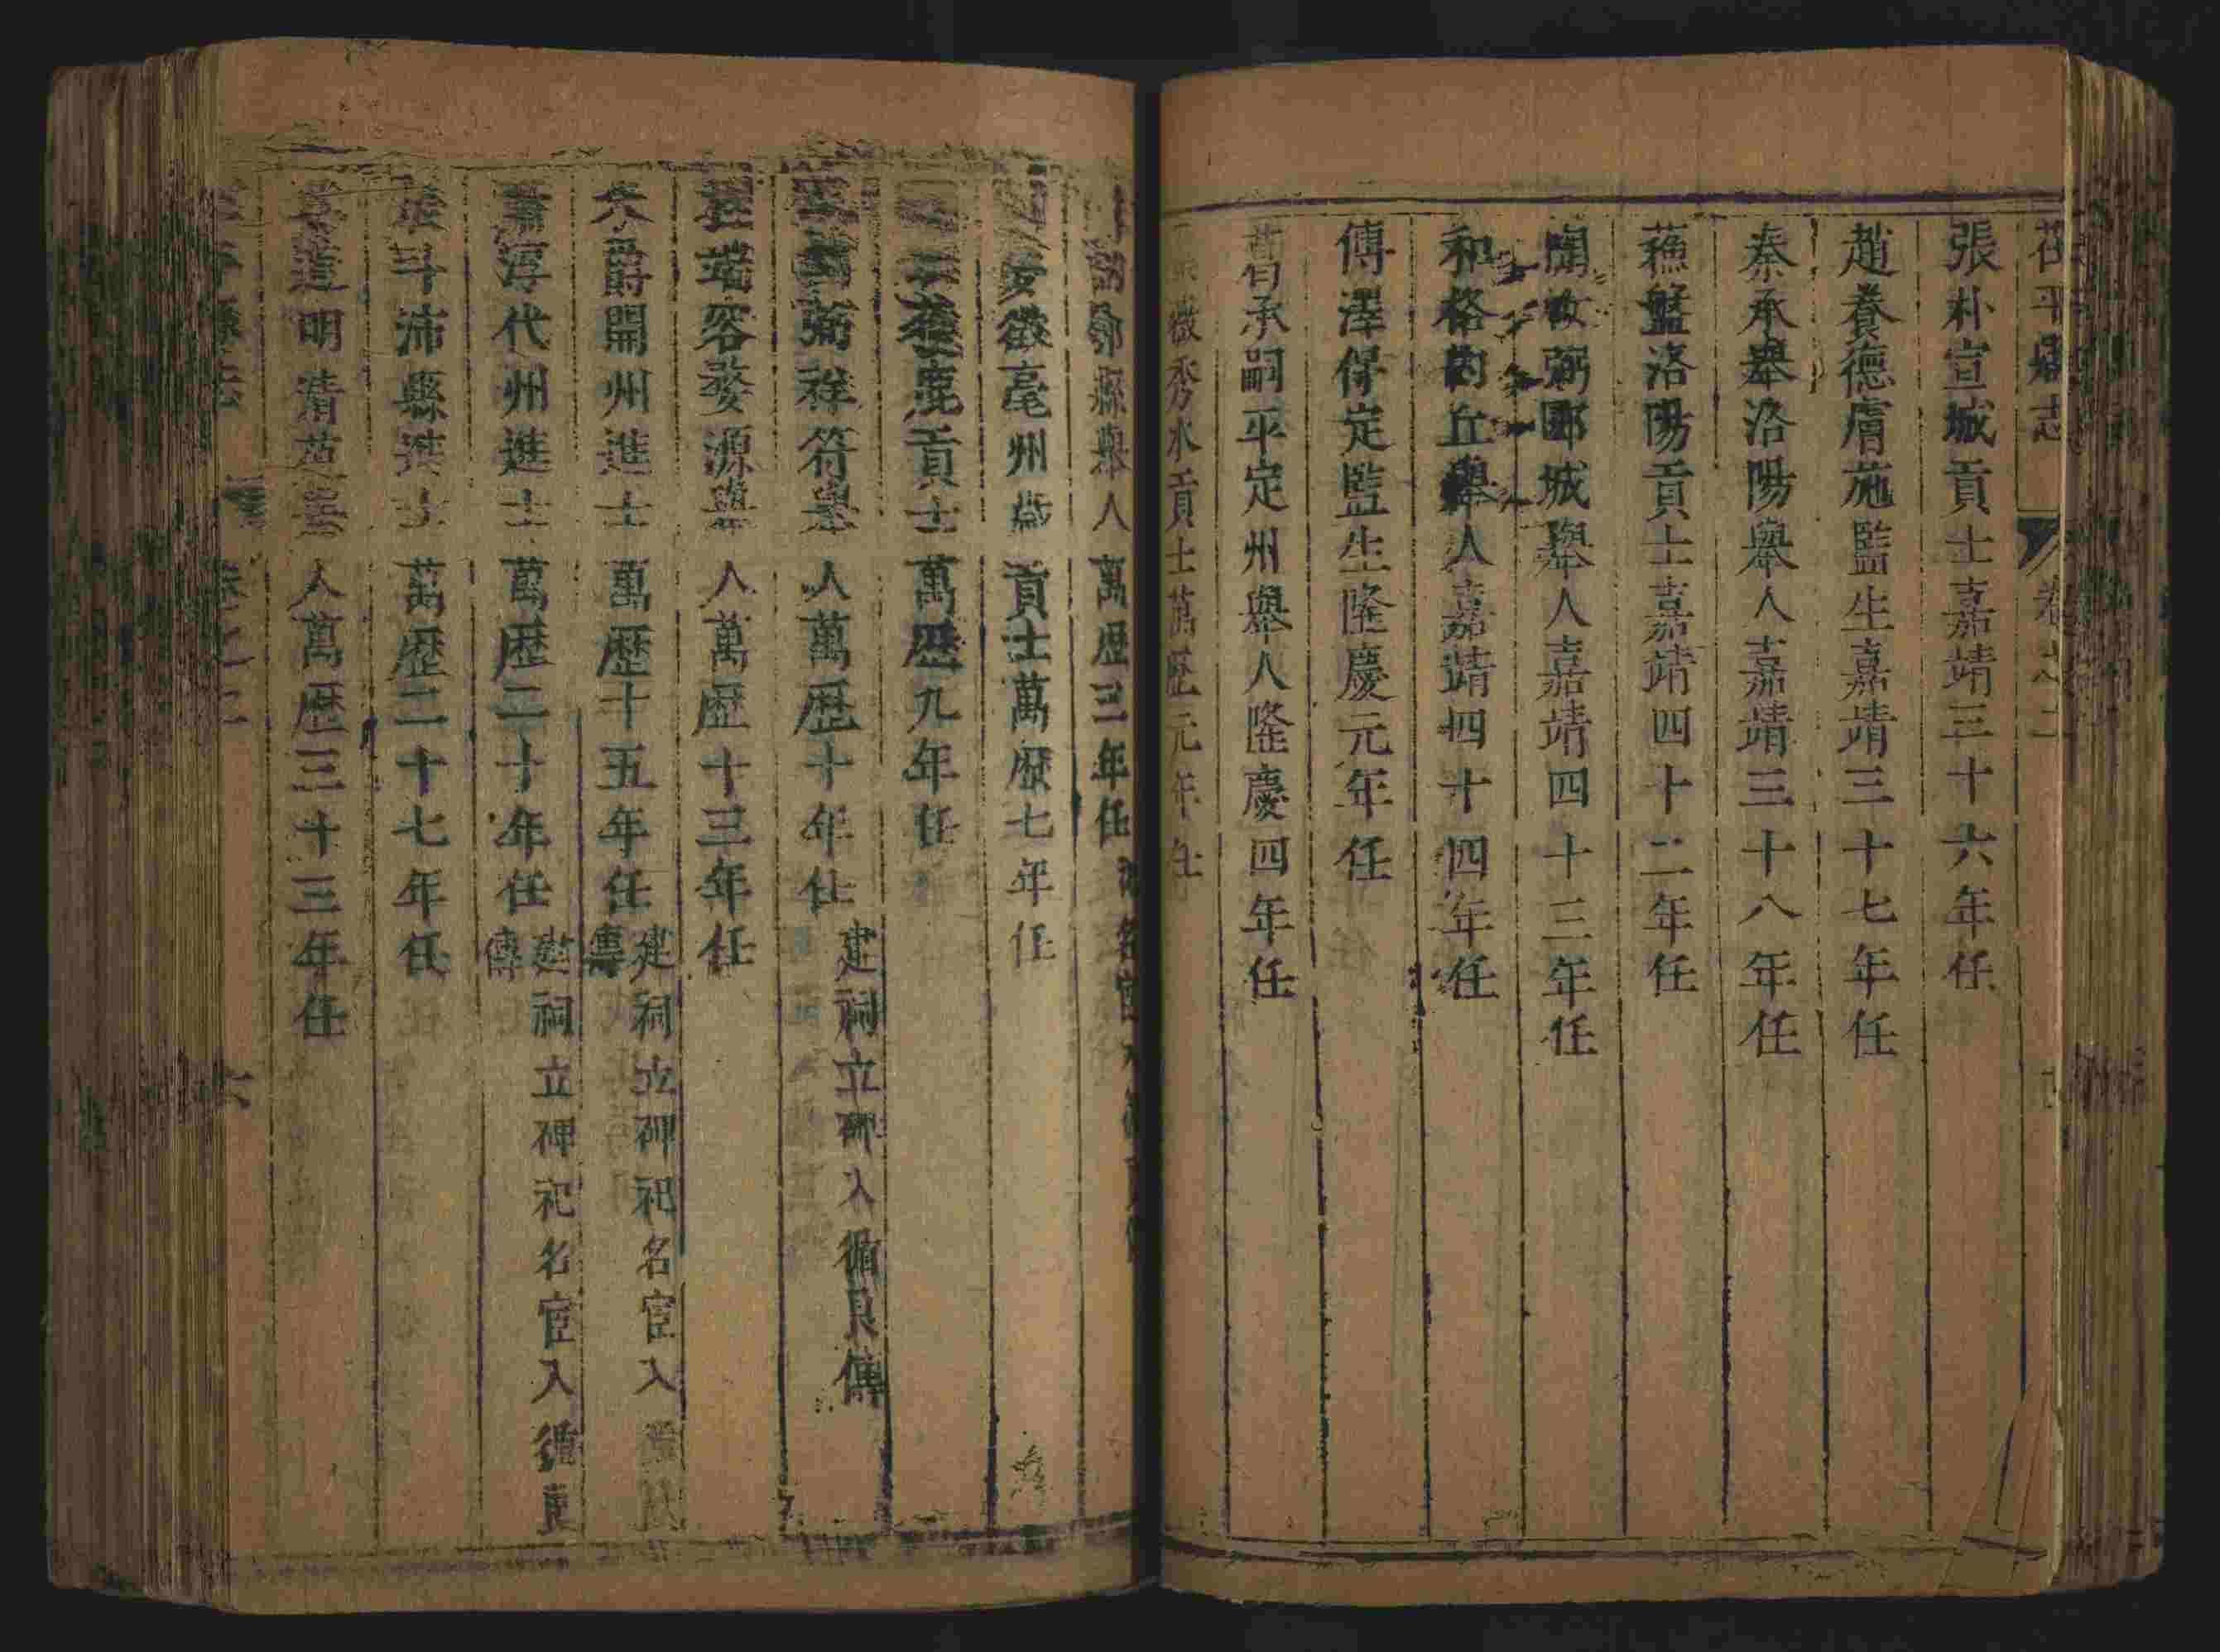 茌平縣志 卷之二
張朴宣城貢士嘉靖三十六年任
趙養德膚施監生嘉靖三十七年任
秦承舉洛陽舉人嘉靖三十八年任
蘓盤洛陽貢士嘉靖四十二年任
閻汝弼鄆城舉人嘉靖四十三年任
和格内丘舉人嘉靖四十四年任
傅澤保定監生隆慶元年任
昝承嗣平定州舉人隆慶四年任
徵秀水貢士萬歷元年任
縣舉人萬歷三年任 名宦
徵亳州歲貢士萬歷七年任
鹿貢士萬歷九年任
弼祥符舉人萬歷十年任 建祠立碑入循良傳
端容婺源舉人萬歷十三年任
爵開州進士萬歷十五年任 建祠立碑祀名宦入 傳
淳代州進士萬歷二十年任 建祠立碑祀名宦入循良傳
張斗沛縣進士萬歷二十七年任
道明清苑舉人萬歷三十三年任
卷之二 六